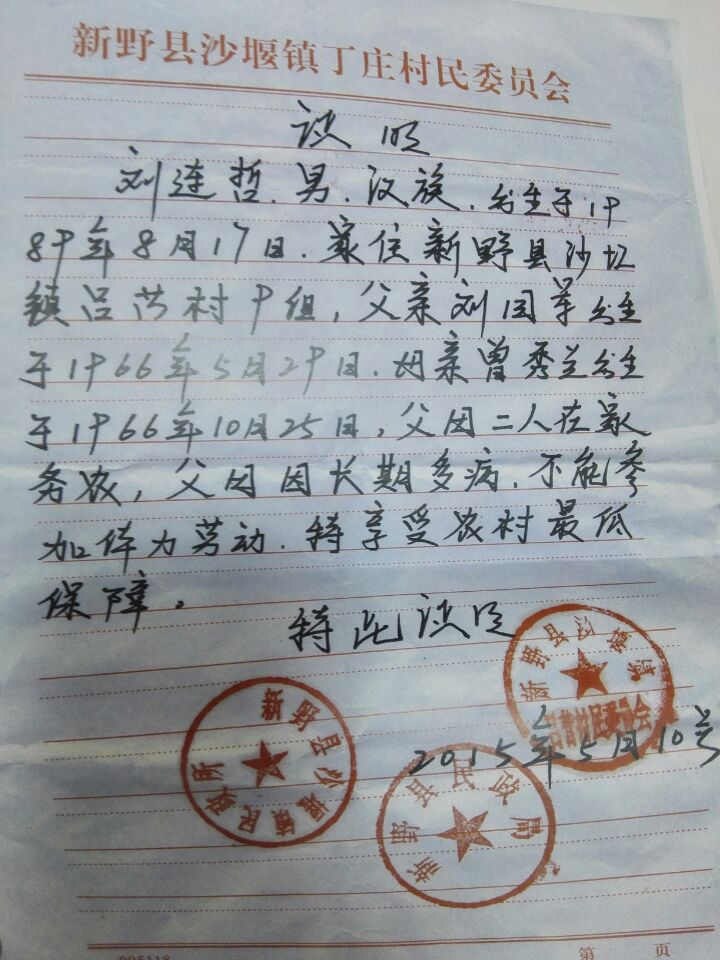 新野县沙堰镇丁庄村民委员会
证明
刘连哲.男.汉族.出生于19
89年8月17日.家住新野县沙堰
镇吕营村9组,父亲刘国莘出生
于1966年5月29日.母亲曾秀兰出生
于1966年10月25日,父母二人在家
务农,父母因长期多病.不能参
加体力劳动.特享受农村最低
保障。
特此证明
新野县沙堰镇
村民委员会
2015年5月10号
新野县沙堰镇民政所
新野县民政局
第 页